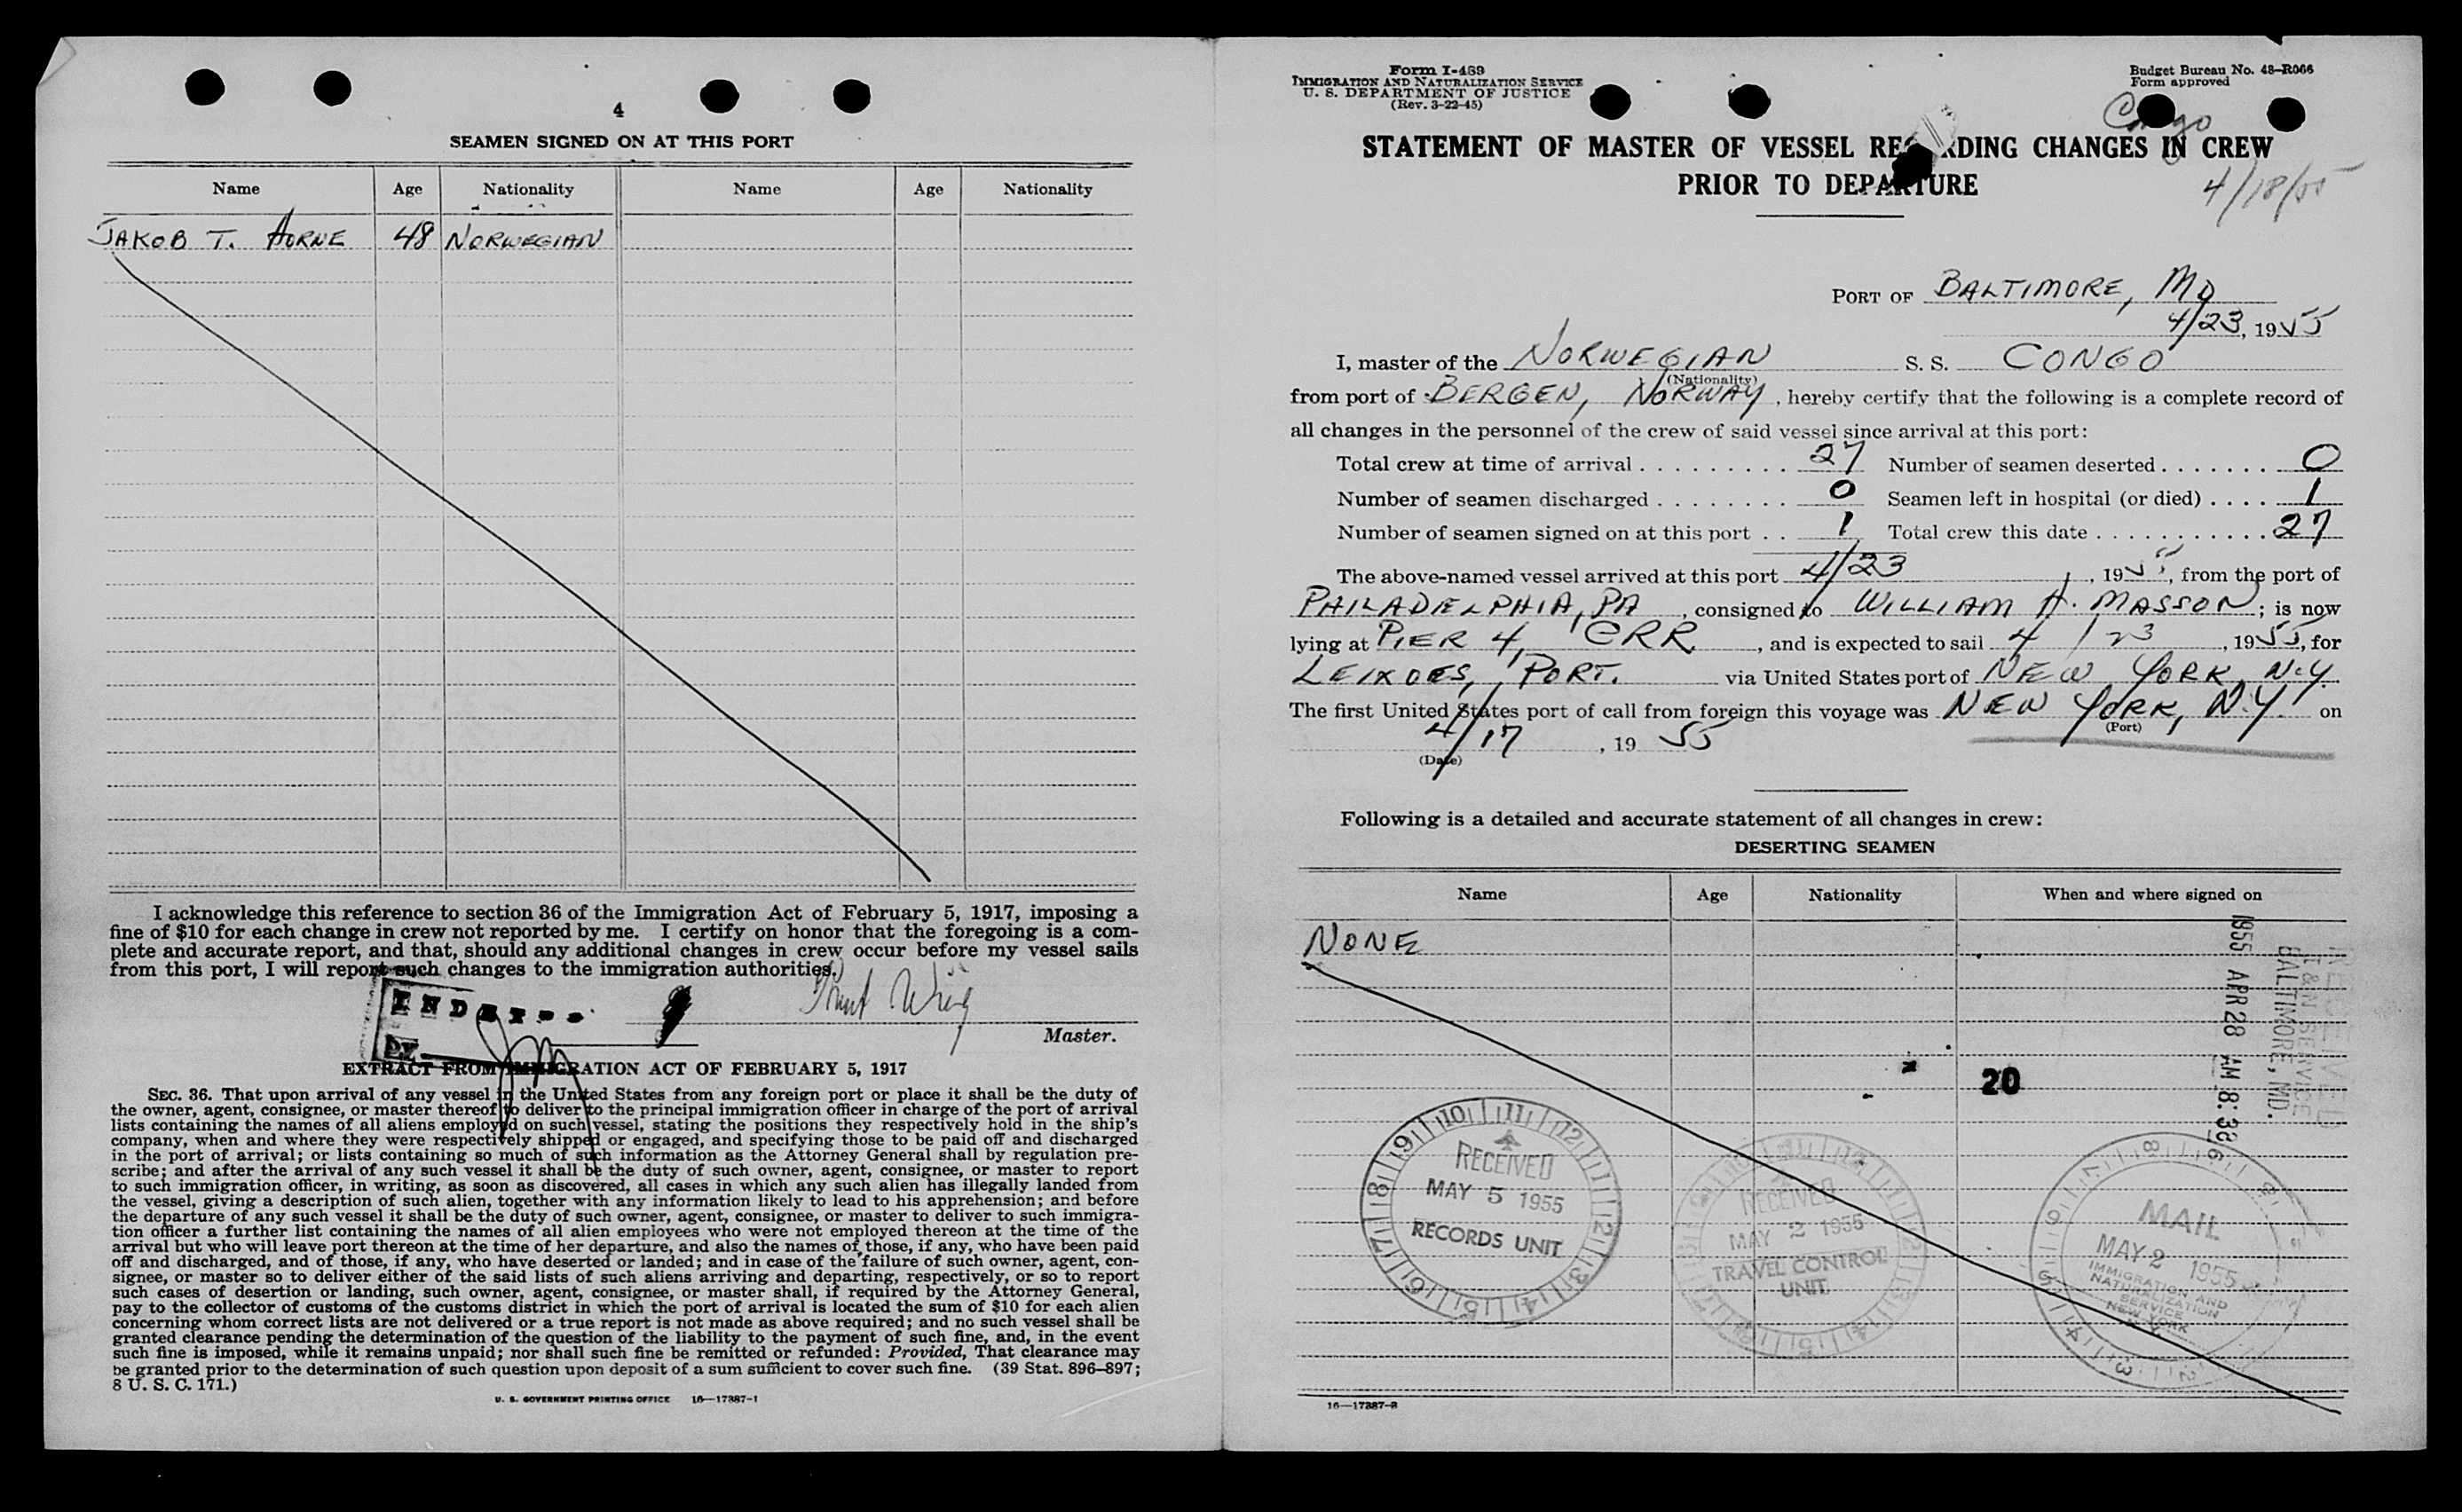 4
SEAMEN SIGNED ON AT THIS PORT
Name Age Nationality Name Age Nationality
JAKOB T. 48 NORWEGIAN
I acknowledge this reference to section 36 of the Immigration Act of February 5, 1917, imposing a
fine of $10 for each change in crew not reported by me. I certify on honor that the foregoing is a com-
plete and accurate report, and that, should any additional changes in crew occur before my vessel sails
from this port, I will report such changes to the immigration authorities.
Master.
BY
EXTRACT FROM IMMIGRATION ACT OF FEBRUARY 5, 1917
SEC. 36. That upon arrival of any vessel in the United States from any foreign port or place it shall be the duty of
the owner, agent, consignee, or master thereof to deliver to the principal immigration officer in charge of the port of arrival
lists containing the names of all aliens employed on such vessel, stating the positions they respectively hold in the ship's
company, when and where they were respectively shipped or engaged, and specifying those to be paid off and discharged
in the port of arrival; or lists containing so much of such information as the Attorney General shall by regulation pre-
scribe; and after the arrival of any such vessel it shall be the duty of such owner, agent, consignee, or master to report
to such immigration officer, in writing, as soon as discovered, all cases in which any such alien has illegally landed from
the vessel, giving a description of such alien, together with any information likely to lead to his apprehension; and before
the departure of any such vessel it shall be the duty of such owner, agent, consignee, or master to deliver to such immigra-
tion officer a further list containing the names of all alien employees who were not employed thereon at the time of the
arrival but who will leave port thereon at the time of her departure, and also the names of those, if any, who have been paid
off and discharged, and of those, if any, who have deserted or landed; and in case of the failure of such owner, agent, con-
signee, or master so to deliver either of the said lists of such aliens arriving and departing, respectively, or so to report
such cases of desertion or landing, such owner, agent, consignee, or master shall, if required by the Attorney General,
pay to the collector of customs of the customs district in which the port of arrival is located the sum of $10 for each alien
concerning whom correct lists are not delivered or a true report is not made as above required; and no such vessel shall be
granted clearance pending the determination of the question of the liability to the payment of such fine, and, in the event
such fine is imposed, while it remains unpaid; nor shall such fine be remitted or refunded: Provided, That clearance may
be granted prior to the determination of such question upon deposit of a sum sufficient to cover such fine. (39 Stat. 896–897;
8 U. S. C. 171.)
U. S. GOVERNMENT PRINTING OFFICE 16—17387-1
Form I-489
IMMIGRATION AND NATURALIZATION SERVICE
U. S. DEPARTMENT OF JUSTICE
(Rev. 3-22-45)
Budget Bureau No. 43–R066
Form approved
Congo
STATEMENT OF MASTER OF VESSEL REGARDING CHANGES IN CREW
PRIOR TO DEPARTURE
4/18/55
PORT OF BALTIMORE, MD
4/23, 1955
I, master of the NORWEGIAN S. S. CONGO
(Nationality)
from port of BERGEN, NORWAY, hereby certify that the following is a complete record of
all changes in the personnel of the crew of said vessel since arrival at this port:
Total crew at time of arrival . . . . . . . . . 27 Number of seamen deserted . . . . . . . 0
Number of seamen discharged . . . . . . . . 0 Seamen left in hospital (or died) . . . . 1
Number of seamen signed on at this port . . 1 Total crew this date . . . . . . . . . . . 27
The above-named vessel arrived at this port 4/23, 1955, from the port of
PHILADELPHIA, PA, consigned to WILLIAM H. MASSON; is now
lying at PIER 4, CRR, and is expected to sail 4/23, 1955, for
LEIXOES, PORT. via United States port of NEW YORK, N.Y.
The first United States port of call from foreign this voyage was NEW YORK, N.Y. on
(Port)
4/17, 19 55
(Date)
Following is a detailed and accurate statement of all changes in crew:
DESERTING SEAMEN
Name Age Nationality When and where signed on
NONE
RECEIVED
I & N SERVICE
BALTIMORE, MD.
1955 APR 28 AM 8:38
20
RECEIVED
MAY 5 1955
RECORDS UNIT
RECEIVED
MAY 2 1955
TRAVEL CONTROL
UNIT
MAIL
MAY 2 1955
IMMIGRATION AND
NATURALIZATION
SERVICE
NEW YORK
16—17387-2